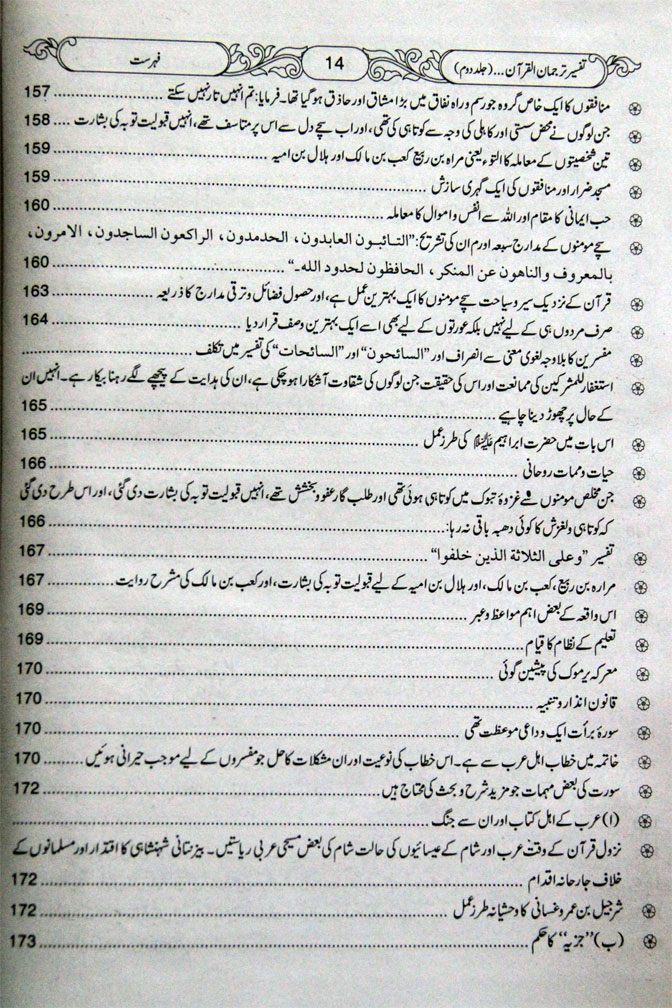 تفسیر ترجمان القرآن... (جلد دوم)
14
فہرست
منافقوں کا ایک خاص گروہ جو رسم و راہ نفاق میں بڑا مشاق اور حاذق ہو گیا تھا۔ فرمایا: تم انہیں تار نہیں سکتے ........ 157
جن لوگوں نے محض سستی اور کاہلی کی وجہ سے کوتاہی کی تھی، اور اب سچے دل سے اس پر متاسف تھے، انہیں قبولیت توبہ کی بشارت .... 158
تین شخصیتوں کے معاملہ کا التوء یعنی مراہ بن ربیع کعب بن مالک اور ہلال بن امیہ ........ 159
مسجد ضرار اور منافقوں کی ایک گہری سازش ........ 159
حب ایمانی کا مقام اور اللہ سے انفس و اموال کا معاملہ ........ 160
سچے مومنوں کے مدارج سبعہ اورم ان کی تشریح: "التـائبـون العابدون، الحدمدون، الراکعون الساجدون، الامرون،
بالمعروف والناهون عن المنکر، الحافظون لحدود الله۔" ........ 160
قرآن کے نزدیک سیر و سیاحت سچے مومنوں کا ایک بہترین عمل ہے، اور حصول فضائل و ترقی مدارج کا ذریعہ ........ 163
صرف مردوں ہی کے لیے نہیں بلکہ عورتوں کے لیے بھی اسے ایک بہترین وصف قرار دیا ........ 164
مفسرین کا بلاوجہ لغوی معنی سے انصراف اور "السائحون" اور "السائحات" کی تفسیر میں تکلف ........
استغفار للمشرکین کی ممانعت اور اس کی حقیقت جن لوگوں کی شقاوت آشکارا ہو چکی ہے، ان کی ہدایت کے پیچھے لگے رہنا بیکار ہے۔ انہیں ان
کے حال پر چھوڑ دینا چاہیے ........ 165
اس بات میں حضرت ابراہیم علیہ السلام کی طرز عمل ........ 165
حیات و ممات روحانی ........ 166
جن مخلص مومنوں سے غزوۂ تبوک میں کوتاہی ہوئی تھی اور طلب گار عفو و بخشش تھے، انہیں قبولیت توبہ کی بشارت دی گئی، اور اس طرح دی گئی
کہ کوتاہی و لغزش کا کوئی دھبہ باقی نہ رہا: ........ 166
تفسیر "وعلی الثلاثة الذین خلفوا" ........ 167
مرارہ بن ربیع، کعب بن مالک، اور ہلال بن امیہ کے لیے قبولیت توبہ کی بشارت، اور کعب بن مالک کی مشرح روایت ........ 167
اس واقعہ کے بعض اہم مواعظ و عبر ........ 169
تعلیم کے نظام کا قیام ........ 169
معرکہ یرموک کی پیشین گوئی ........ 170
قانون انذار و تنبیہ ........ 170
سورۂ برأت ایک وداعی موعظت تھی ........ 170
خاتمہ میں خطاب اہل عرب سے ہے۔ اس خطاب کی نوعیت اور ان مشکلات کا حل جو مفسروں کے لیے موجب حیرانی ہوئیں ........ 170
سورت کی بعض مہمات جو مزید شرح و بحث کی محتاج ہیں ........ 172
(ا) عرب کے اہل کتاب اور ان سے جنگ ........
نزول قرآن کے وقت عرب اور شام کے عیسائیوں کی حالت شام کی بعض مسیحی عربی ریاستیں۔ بیزنتانی شہنشاہی کا اقتدار اور مسلمانوں کے
خلاف جارحانہ اقدام ........ 172
شرجیل بن عمرو غسانی کا وحشیانہ طرز عمل ........ 172
(ب) "جزیہ" کا حکم ........ 173